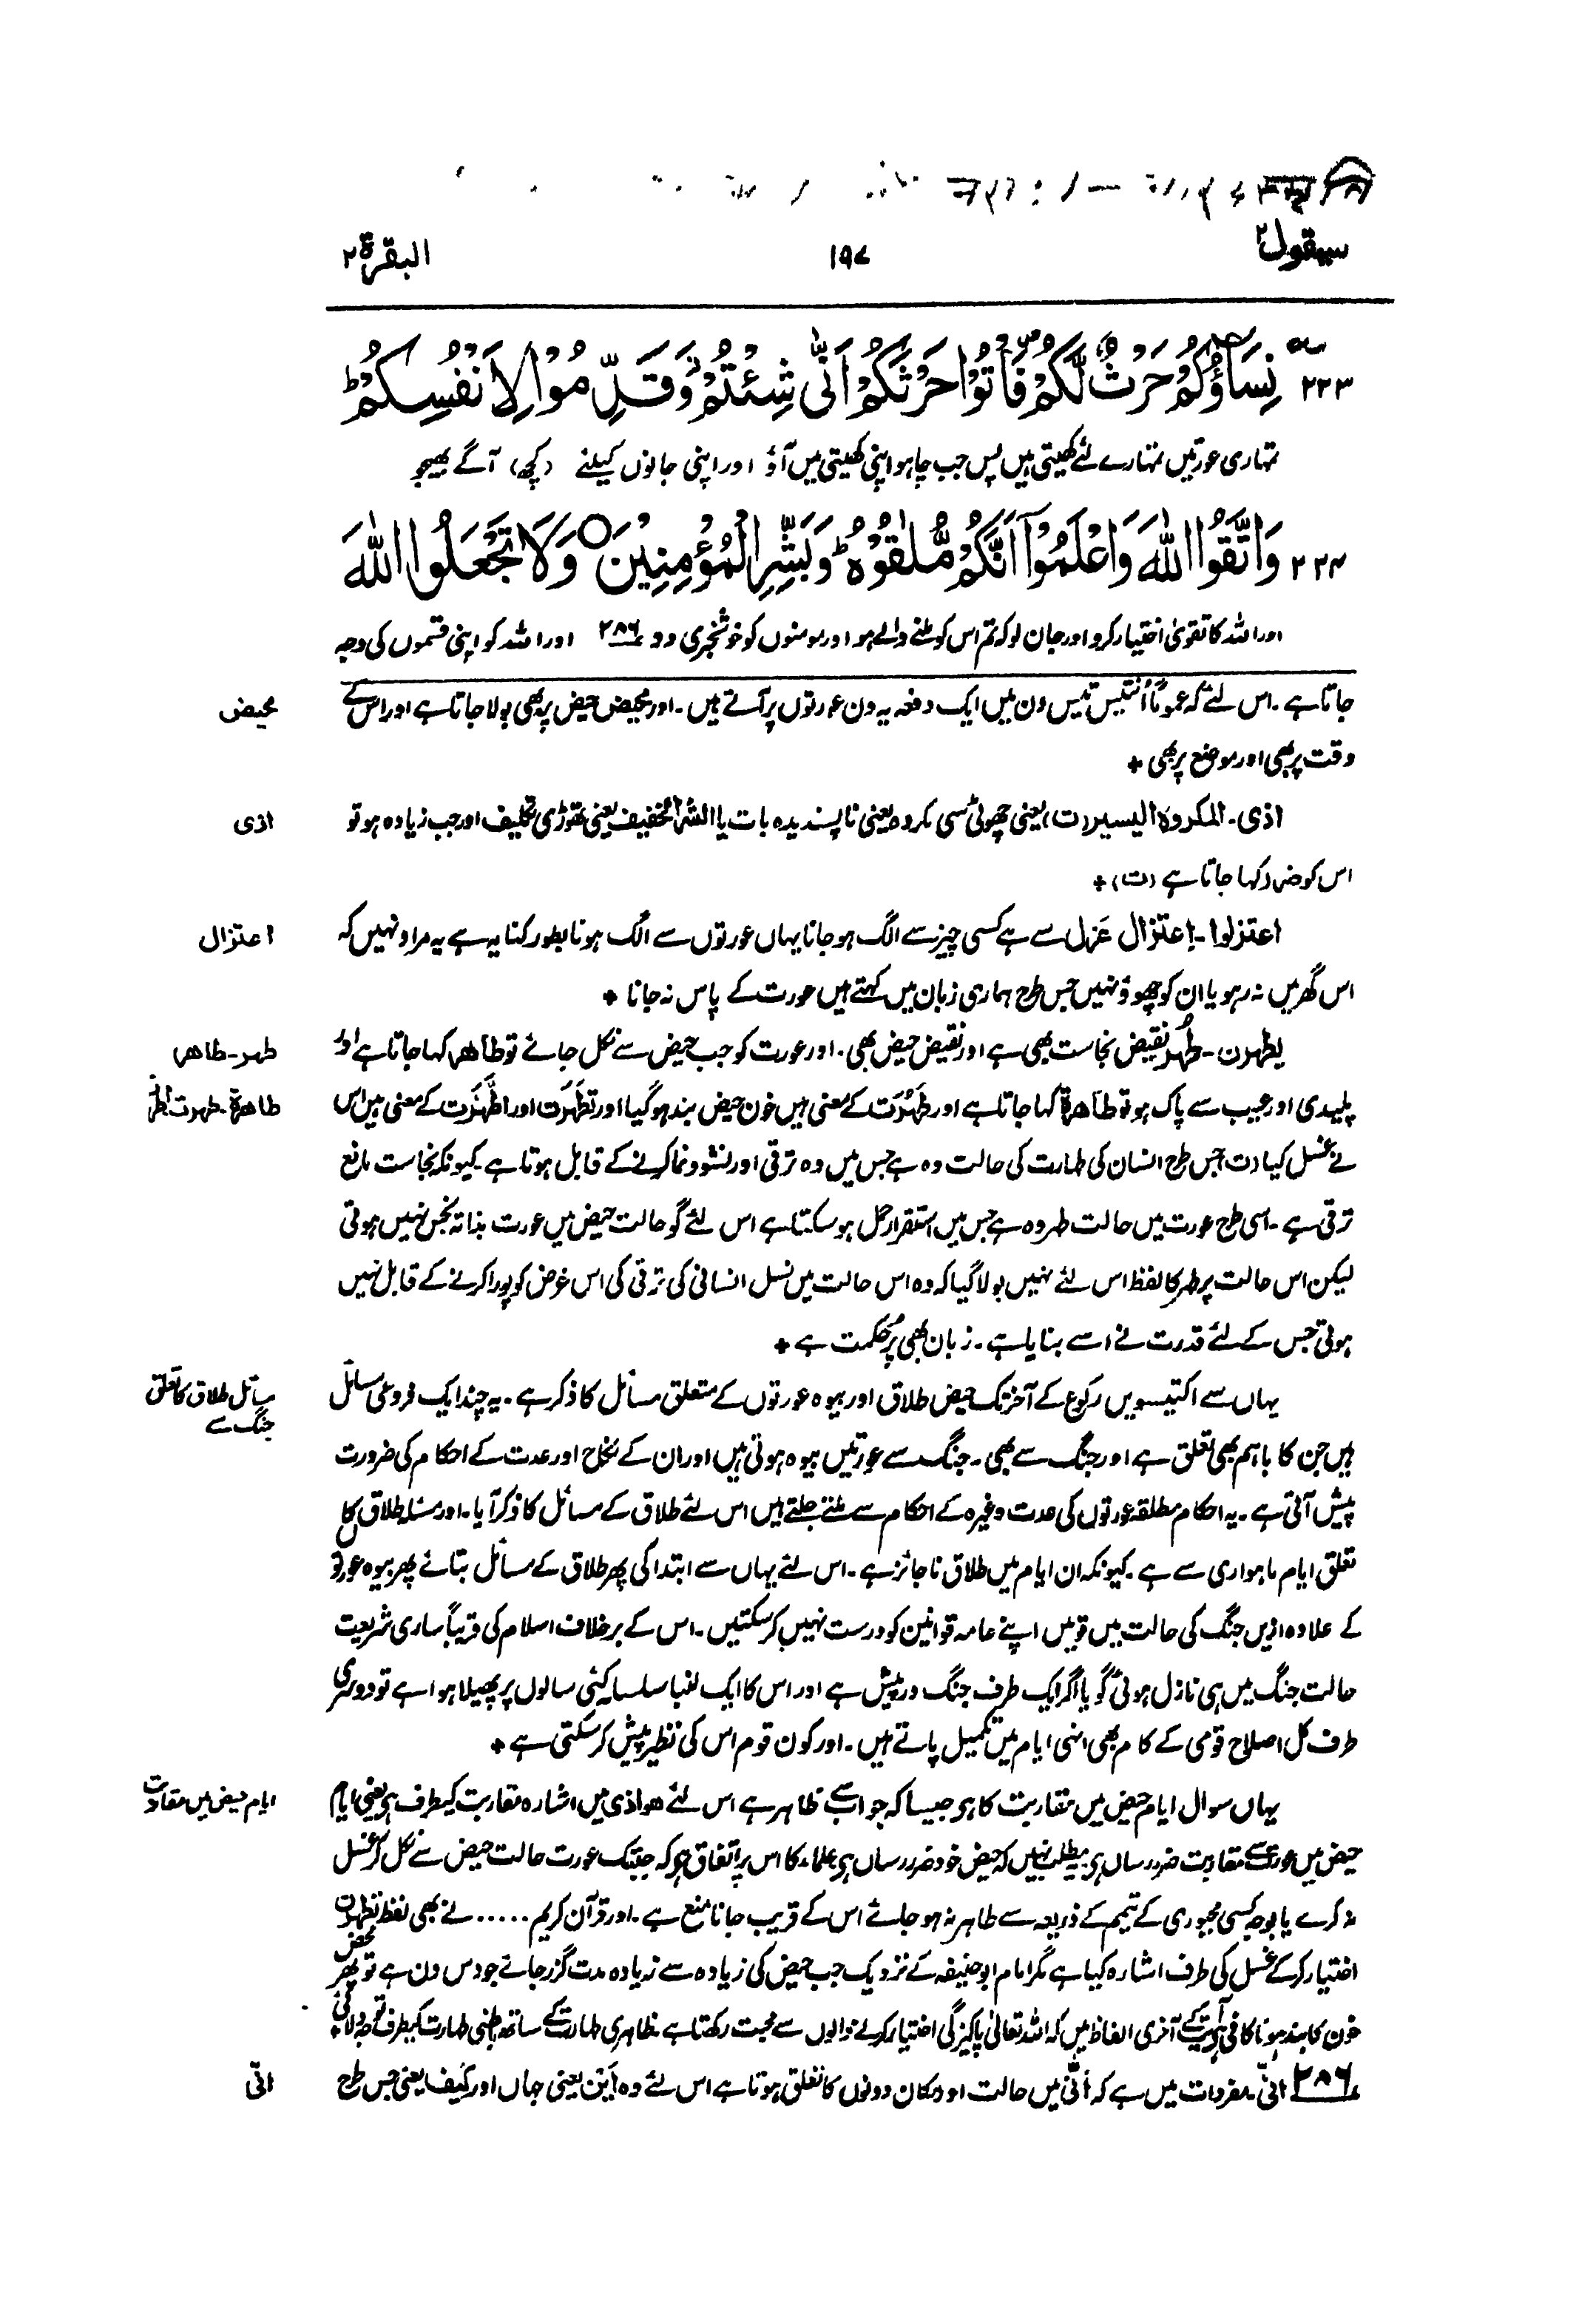 سیقول ۲
۱۹۷
البقرۃ ۲
۲۲۳ نِسَآؤُكُمْ حَرْثٌ لَّكُمْ فَأْتُوْا حَرْثَكُمْ اَنّٰى شِئْتُمْ وَقَدِّمُوْا لِاَنْفُسِكُمْ ؕ
تمہاری عورتیں تمہارے لئے کھیتی ہیں پس جب چاہو اپنی کھیتی میں آؤ اور اپنی جانوں کیلئے (کچھ) آگے بھیجو
۲۲۴ وَاتَّقُوا اللّٰهَ وَاعْلَمُوْۤا اَنَّكُمْ مُّلٰقُوْهُ ؕ وَبَشِّرِ الْمُؤْمِنِيْنَ ○ وَلَا تَجْعَلُوا اللّٰهَ
اور اللہ کا تقویٰ اختیار کرو اور جان لو کہ تم اس کو ملنے والے ہو اور مومنوں کو خوشخبری دو ۲۸۶ اور اللہ کو اپنی قسموں کی وجہ
جاتا ہے۔ اس لئے کہ عموماً اُنتیس تیس دن میں ایک دفعہ یہ دن عورتوں پر آتے ہیں۔ اور محیض حیض پر بھی بولا جاتا ہے اور اس کے
محیض
وقت پر بھی اور موضع پر بھی +
اذی۔ المکروہ الیسیر (ت) یعنی چھوٹی سی مکروہ یعنی ناپسندیدہ بات یا الشر الخفیف یعنی تھوڑی تکلیف اور جب زیادہ ہو تو
اذی
اس کو ضرر کہا جاتا ہے (ت) +
اعتزلوا۔ اِعتزال عَزل سے ہے کسی چیز سے الگ ہو جانا یہاں عورتوں سے الگ ہونا بطور کنایہ ہے یہ مراد نہیں کہ
اعتزال
اس گھر میں نہ رہو یا ان کو چھوؤ نہیں جس طرح ہماری زبان میں کہتے ہیں عورت کے پاس نہ جانا +
یطہرن۔ طُہر نقیض نجاست بھی ہے اور نقیض حیض بھی۔ اور عورت کو جب حیض سے نکل جائے تو طاھر کہا جاتا ہے اور
طہر۔ طاھر
پلیدی اور عیب سے پاک ہو تو طاھرۃ کہا جاتا ہے اور طَہُرَت کے معنی ہیں خون حیض بند ہوگیا اور تطہّرَت اور اطّہَّرَت کے معنی ہیں اس
طاھرۃ۔ طہرت
نے غسل کیا (ت) جس طرح انسان کی طہارت کی حالت وہ ہے جس میں وہ ترقی اور نشوونما کرنے کے قابل ہوتا ہے کیونکہ نجاست مانع
ترقی ہے۔ اسی طرح عورت میں حالت طہر وہ ہے جس میں استقرار حمل ہو سکتا ہے اس لئے گو حالت حیض میں عورت بذاتہ نجس نہیں ہوتی
لیکن اس حالت پر طہر کا لفظ اس لئے نہیں بولا گیا کہ وہ اس حالت میں نسل انسانی کی ترقی کی اس غرض کو پورا کرنے کے قابل نہیں
ہوتی جس کے لئے قدرت نے اسے بنایا ہے۔ زبان بھی پُرحکمت ہے +
یہاں سے اکتیسویں رکوع کے آخر تک حیض طلاق اور بیوہ عورتوں کے متعلق مسائل کا ذکر ہے۔ یہ چند ایک فروعی مسائل
مسائل طلاق کا تعلق
جنگ سے
ہیں جن کا باہم بھی تعلق ہے اور جنگ سے بھی۔ جنگ سے عورتیں بیوہ ہوتی ہیں اور ان کے نکاح اور عدت کے احکام کی ضرورت
پیش آتی ہے۔ یہ احکام مطلقہ عورتوں کی عدت وغیرہ کے احکام سے ملتے جلتے ہیں اس لئے طلاق کے مسائل کا ذکر آیا۔ اور مسئلہ طلاق کا
تعلق ایام ماہواری سے ہے کیونکہ ان ایام میں طلاق ناجائز ہے۔ اس لئے یہاں سے ابتدا کی پھر طلاق کے مسائل بتائے پھر بیوہ عورتوں
کے علاوہ ازیں جنگ کی حالت میں قومیں اپنے عامہ قوانین کو درست نہیں کر سکتیں۔ اس کے برخلاف اسلام کی قریباً ساری شریعت
حالت جنگ میں ہی نازل ہوئی گویا اگر ایک طرف جنگ درپیش ہے اور اس کا ایک لنبا سلسلہ کئی سالوں پر پھیلا ہوا ہے تو دوسری
طرف کل اصلاح قومی کے کام بھی انہی ایام میں تکمیل پاتے ہیں۔ اور کون قوم اس کی نظیر پیش کر سکتی ہے +
یہاں سوال ایام حیض میں مقاربت کا ہے جیسا کہ جواب سے ظاہر ہے اس لئے ھو اذی میں اشارہ مقاربت کیطرف ہے یعنی ایام
ایام حیض میں مقاربت
حیض میں عورت سے مقاربت ضرر رساں ہے یہ مطلب نہیں کہ حیض خود ضرر رساں ہے علماء کا اس پر اتفاق ہے کہ جبتک عورت حالت حیض سے نکل کر غسل
نہ کرے یا بوجہ کسی مجبوری کے تیمم کے ذریعہ سے طاہر نہ ہو جائے اس کے قریب جانا منع ہے۔ اور قرآن کریم ..... نے بھی لفظ تطہرن
اختیار کر کے غسل کی طرف اشارہ کیا ہے مگر امام ابو حنیفہ کے نزدیک جب حیض کی زیادہ سے زیادہ مدت گزر جائے جو دس دن ہے تو پھر محض
خون کا بند ہونا کافی ہے آیت کے آخری الفاظ میں کہ اللہ تعالیٰ پاکیزگی اختیار کرنے والوں سے محبت رکھتا ہے ظاہری طہارت کے ساتھ باطنی طہارت کیطرف توجہ دلائی +
۲۸۶ انّٰی۔ مفردات میں ہے کہ اَنّٰی میں حالت اور مکان دونوں کا تعلق ہوتا ہے اس لئے وہ اَین یعنی جہاں اور کَیف یعنی جس طرح
انّٰی